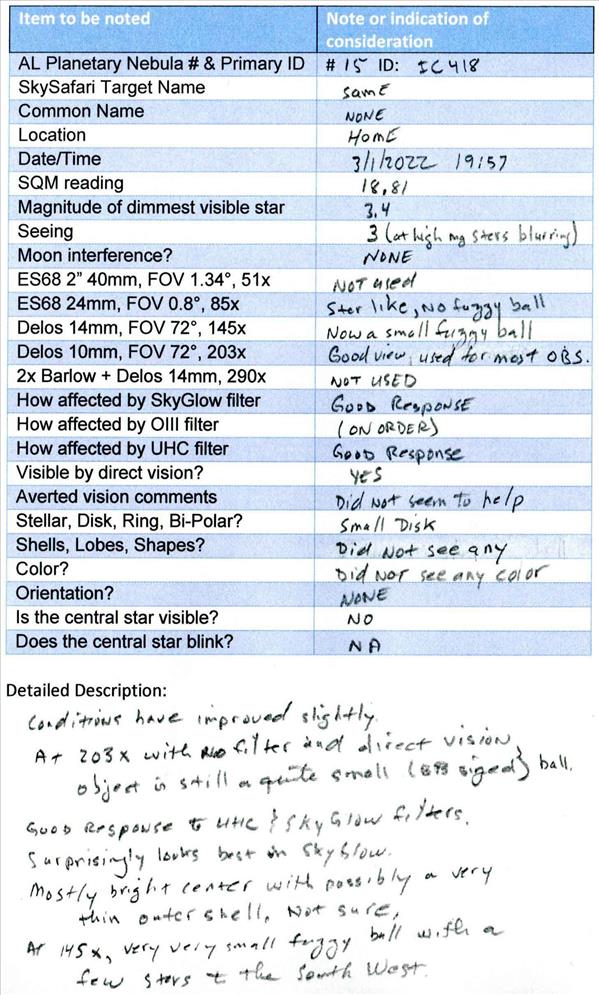 Item to be noted Note or indication of
consideration
AL Planetary Nebula # & Primary ID # 15 ID: IC418
SkySafari Target Name SamE
Common Name NONE
Location HomE
Date/Time 3/1/2022 19:57
SQM reading 18.81
Magnitude of dimmest visible star 3.4
Seeing 3 (at high mg stars blurring)
Moon interference? NONE
ES68 2” 40mm, FOV 1.34°, 51x Not used
ES68 24mm, FOV 0.8°, 85x Star like, No fuzzy ball
Delos 14mm, FOV 72°, 145x Now a small fuzzy ball
Delos 10mm, FOV 72°, 203x Good view, used for most OBS.
2x Barlow + Delos 14mm, 290x NOT USED
How affected by SkyGlow filter GOOD RESPONSE
How affected by OIII filter (ON ORDER)
How affected by UHC filter GOOD Response
Visible by direct vision? YES
Averted vision comments Did Not seem to help
Stellar, Disk, Ring, Bi-Polar? Small DISK
Shells, Lobes, Shapes? Did Not see any
Color? Did Not see any color
Orientation? NONE
Is the central star visible? NO
Does the central star blink? NA
Detailed Description:
Conditions have improved slightly.
At 203x with No filter and direct vision,
object is still a quite small ball.
Good Response to UHC & SkyGlow filters.
Surprisingly looks best in SkyGlow.
Mostly bright center with possibly a very
thin outer shell, Not sure,
At 145x, very very small fuzzy ball with a
few stars to the South West.